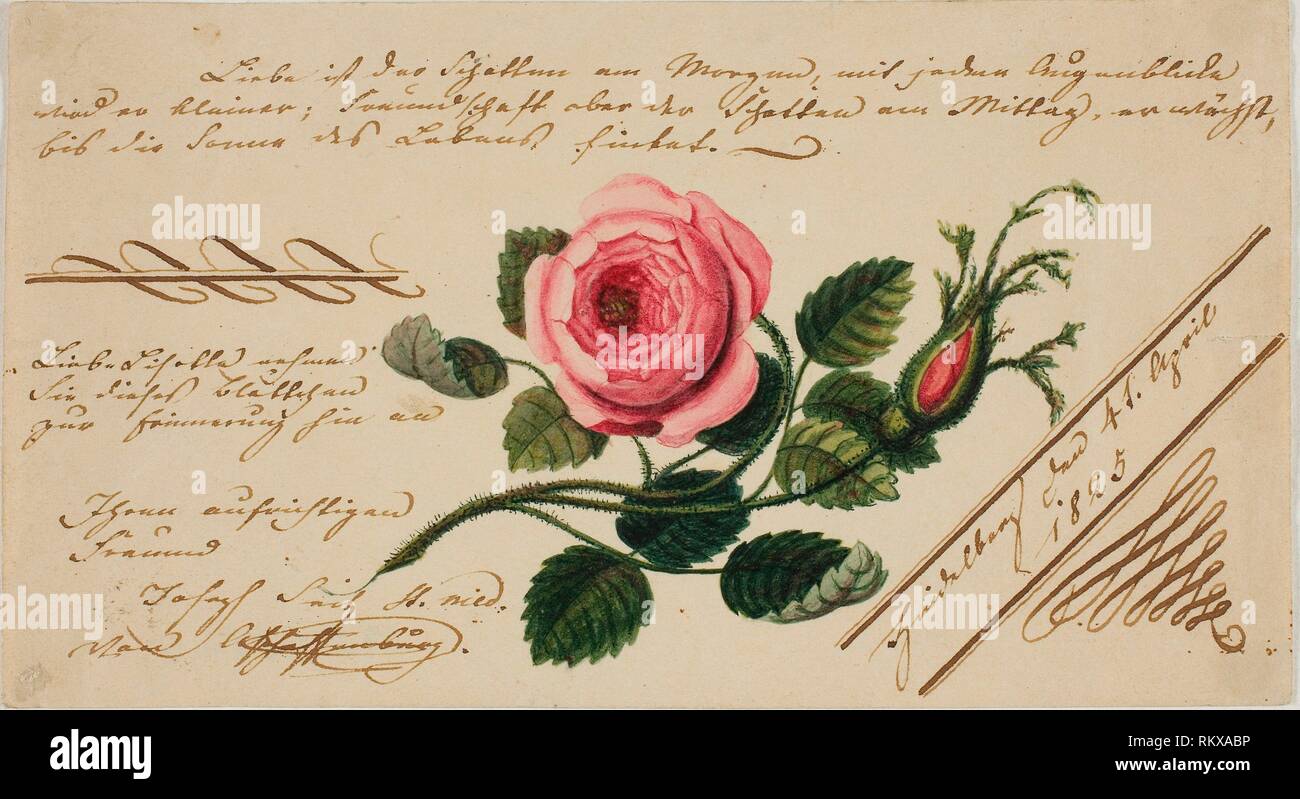 Liebe ist der Schatten am Morgen, mit jedem Augenblicke
wird er kleiner; Freundschaft aber der Schatten am Mittag, er wächst,
bis die Sonne des Lebens sinket.
Liebe Lisette nehmen
Sie dieses Blättchen
zur Erinnerung hin an
Ihren aufrichtigen
Freund
Joseph St. med.
von Aschaffenburg.
Heidelberg den April
1825
alamy
Image ID: RKXABP
www.alamy.com